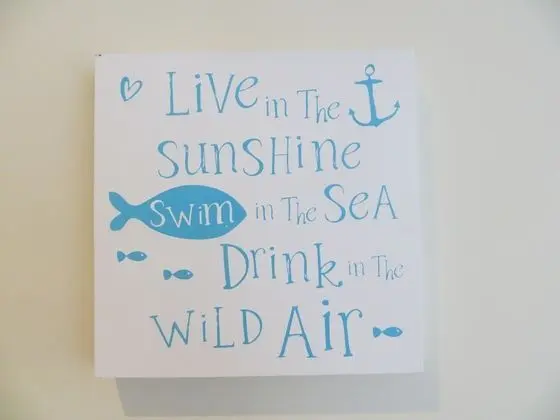 LiVe in The
SunSHine
Swim in The SeA
Drink in The
WiLD Air